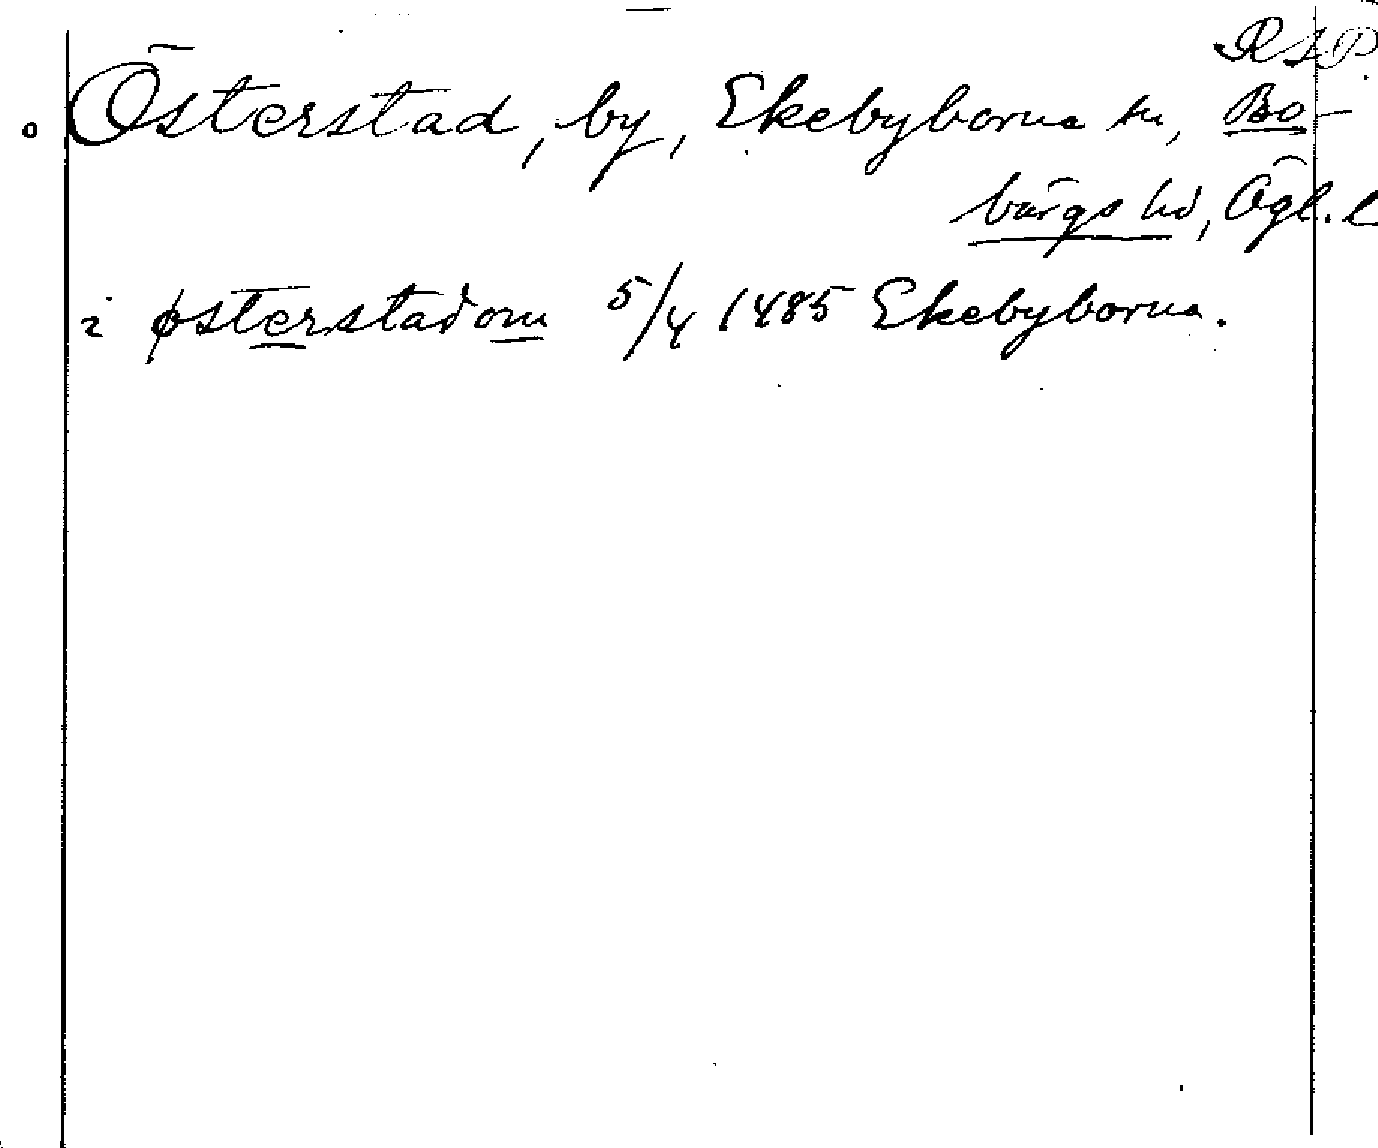 RAP.
Österstad, by, Ekebyborna sn, Bo-
bärgs hd, Ögl. l
i østerstadom 5/4 1485 Ekebyborna.